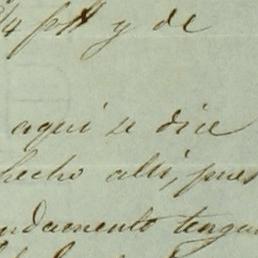 y de
aqui se dice
hecho alli, pues
ndamento tengan